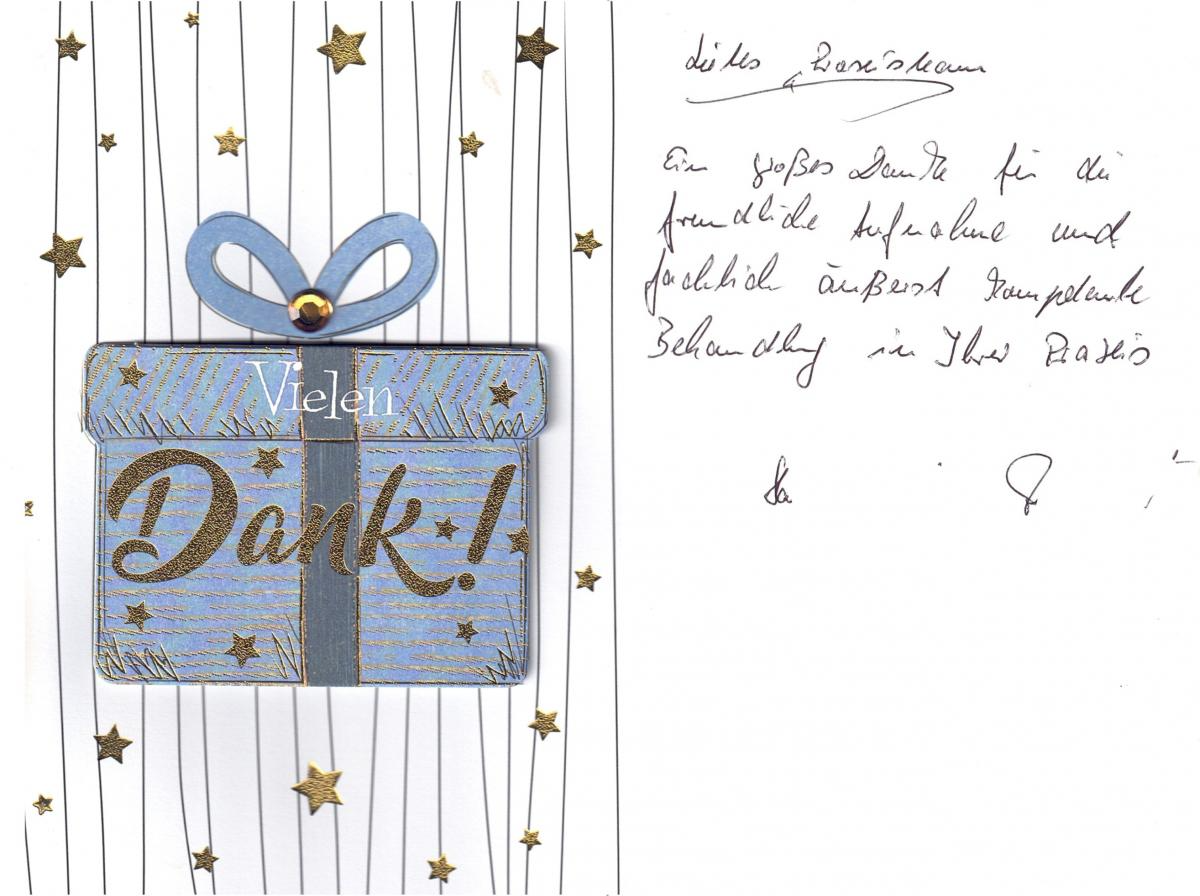 Vielen
Dank!
Liebes Praxisteam
Ein großes Danke für die
freundliche Aufnahme und
fachlich äußerst kompetente
Behandlung in Ihrer Praxis